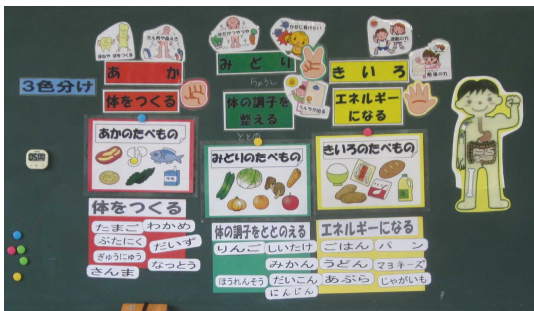 3色分け
05:00
あか
体をつくる
あかのたべもの
体をつくる
たまご
わかめ
ぶたにく
だいず
ぎゅうにゅう
なっとう
さんま
みどり
ちょうし
体の調子を
整える
ととの
みどりのたべもの
体の調子をととのえる
りんご
しいたけ
みかん
ほうれんそう
だいこん
にんじん
きいろ
エネルギー
になる
きいろのたべもの
エネルギーになる
ごはん
パン
うどん
マヨネーズ
あぶら
じゃがいも